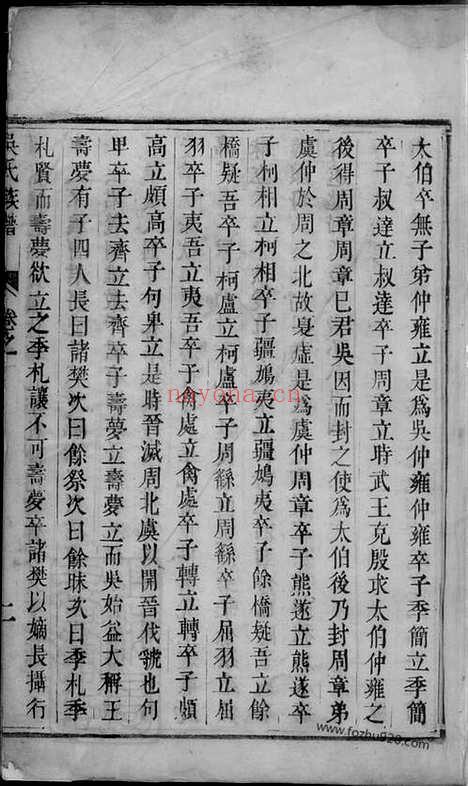 太伯卒無子弟仲雍立是爲吳仲雍仲雍卒子季簡立季簡
卒子叔達立叔達卒子周章立時武王克殷求太伯仲雍之
後得周章周章已君吳因而封之使爲太伯後乃封周章弟
虞仲於周之北故夏虛是爲虞仲周章卒子熊遂立熊遂卒
子柯相立柯相卒子彊鳩夷立彊鳩夷卒子餘橋疑吾立餘
橋疑吾卒子柯盧立柯盧卒子周繇立周繇卒子屈羽立屈
羽卒子夷吾立夷吾卒子禽處立禽處卒子轉立轉卒子頗
高立頗高卒子句卑立是時晉滅周北虞以開晉伐虢也句
卑卒子去齊立去齊卒子壽夢立壽夢立而吳始益大稱王
壽夢有子四人長曰諸樊次曰餘祭次曰餘昧次曰季札季
札賢而壽夢欲立之季札讓不可壽夢卒諸樊以嫡長攝行
吳氏族譜
卷之
nayona.cn
www.fozhu920.com